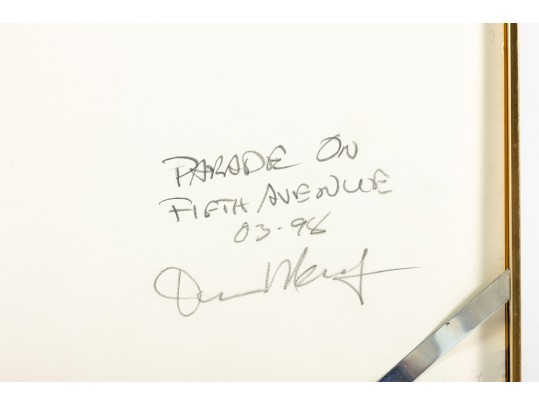 PARADE ON
FIFTH AVENUE
03-98